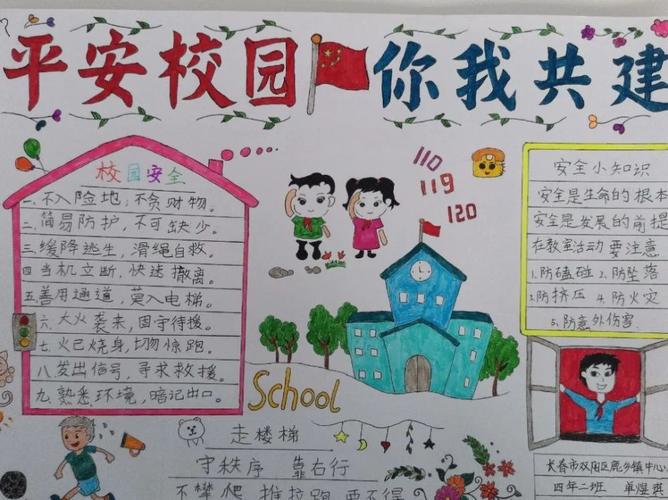 平安校园
你我共建
校园安全
一.不入险地,不贪财物。
二.简易防护,不可缺少。
三.缓降逃生,滑绳自救。
四.当机立断,快速撤离。
五.善用通道,莫入电梯。
六.大火袭来,固守待援。
七.火已烧身,切勿惊跑。
八.发出信号,寻求救援。
九.熟悉环境,暗记出口。
110
119
120
School
安全小知识
安全是生命的根本
安全是发展的前提
在教室活动要注意
1.防磕碰 2.防坠落
3.防挤压 4.防火灾
5.防意外伤害
走楼梯
守秩序 靠右行
不攀爬 推拉跑 要不得
长春市双阳区鹿乡镇中心小
四年二班 单煜